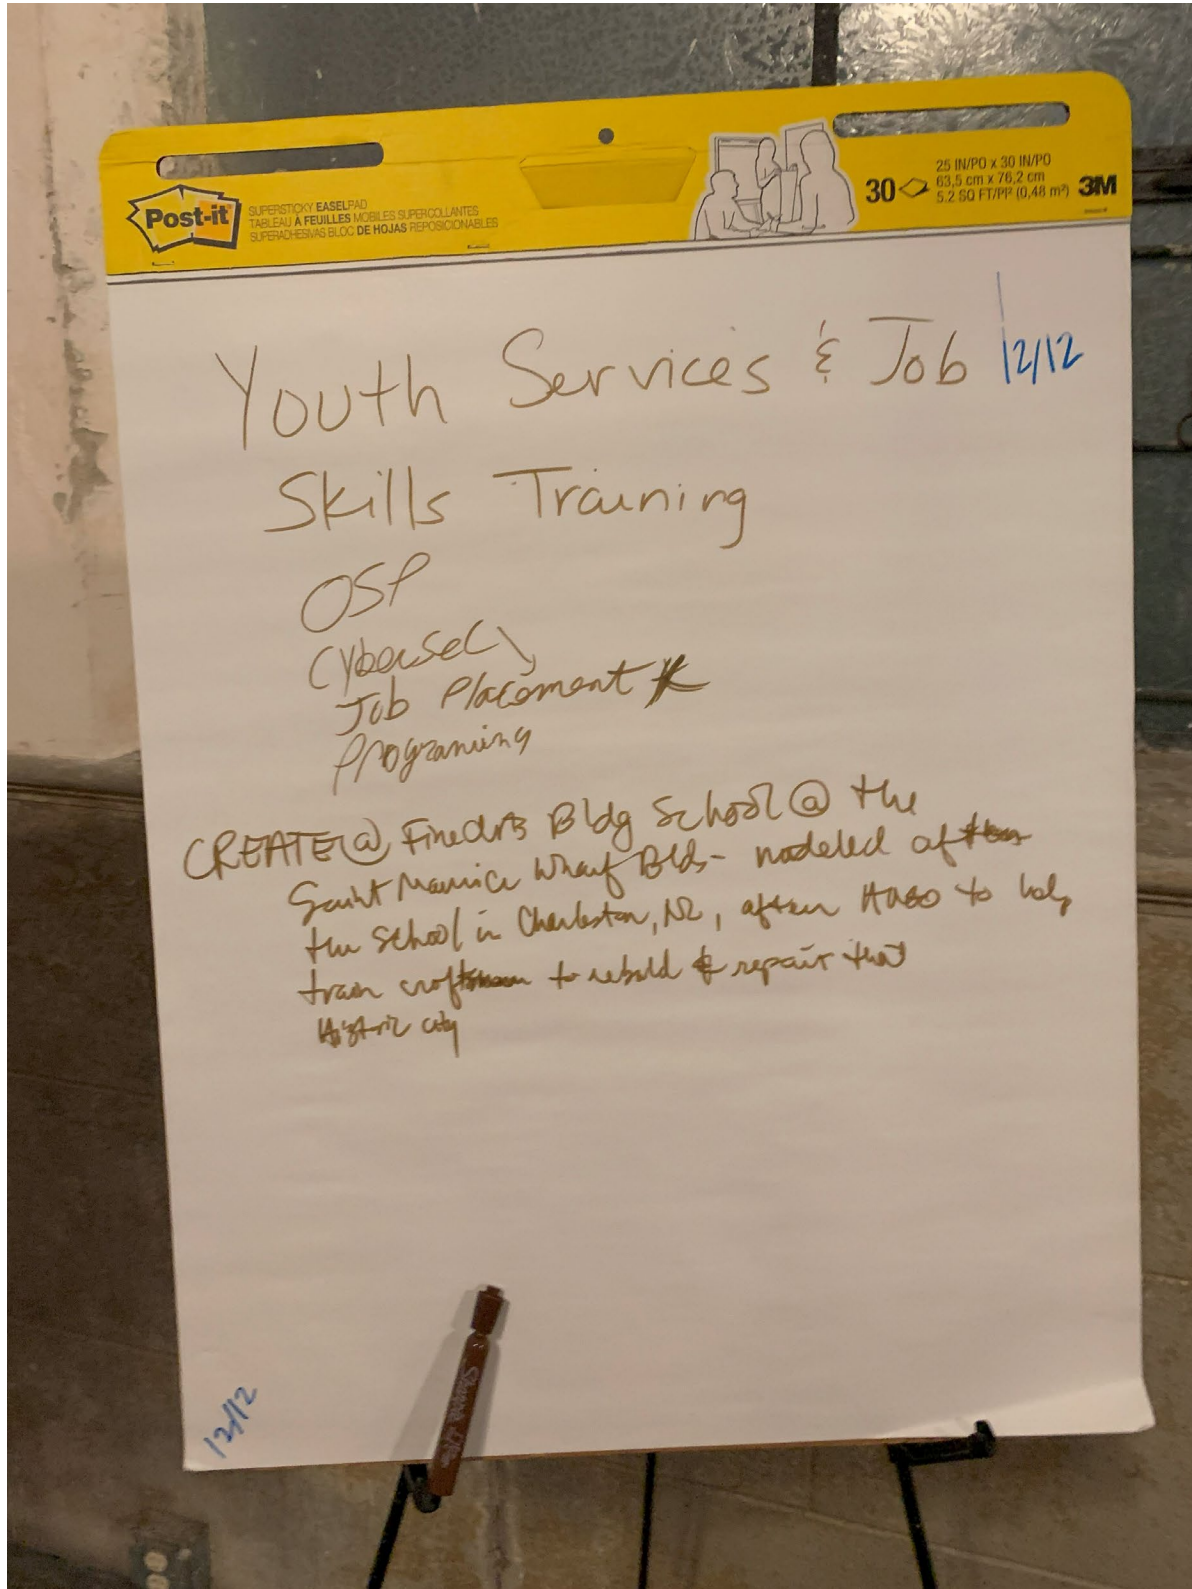 Post-it
SUPERSTICKY EASELPAD
TABLEAU À FEUILLES MOBILES SUPERCOLLANTES
SUPERADHESIVAS BLOC DE HOJAS REPOSICIONABLES
30
25 IN/PO x 30 IN/PO
63,5 cm x 76,2 cm
5.2 SQ FT/PI² (0,48 m²)
3M
Youth Services & Job
12/12
Skills Training
OSP
Cybersec
Job Placement
Programing
CREATE @ Fine Arts Bldg School @ the
Saint Maurice Wharf Blds - modeled after
the School in Charleston, after HUGO to help
train craftsmen to rebuld & repair that
Historic city
12/12
Sharpie